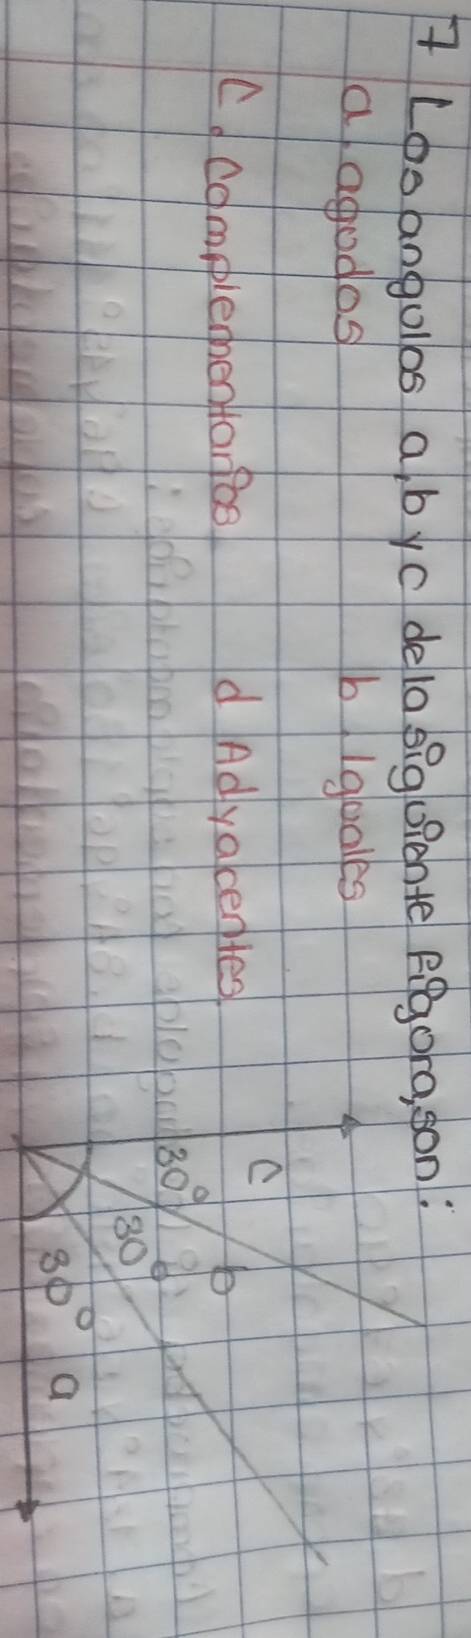 7 Los angulos a, b y c de la siguiente Figora, son:
a. agudos b. Iguales
C. Complementarios d Adyacentes
C
30° b
30°
30° a